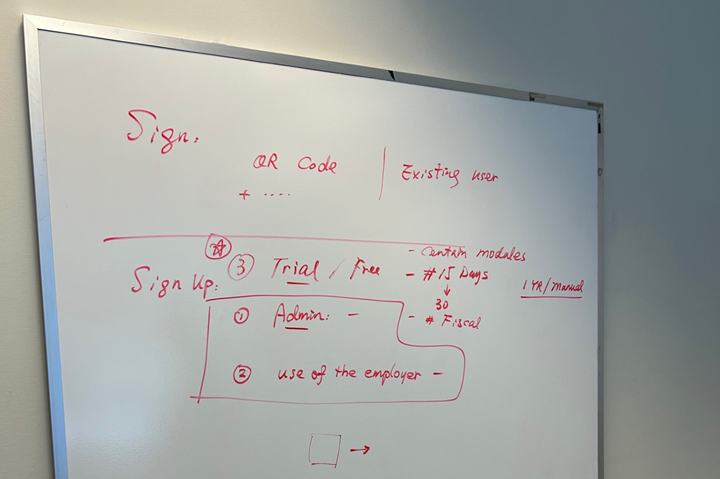 Sign:
QR Code
+ ....
Existing user
Sign Up:
③ Trial / Free
- Certain modules
- # 15 Days
↓
30
- # Fiscal
1 YR/manual
① Admin: -
② use of the employer -
→